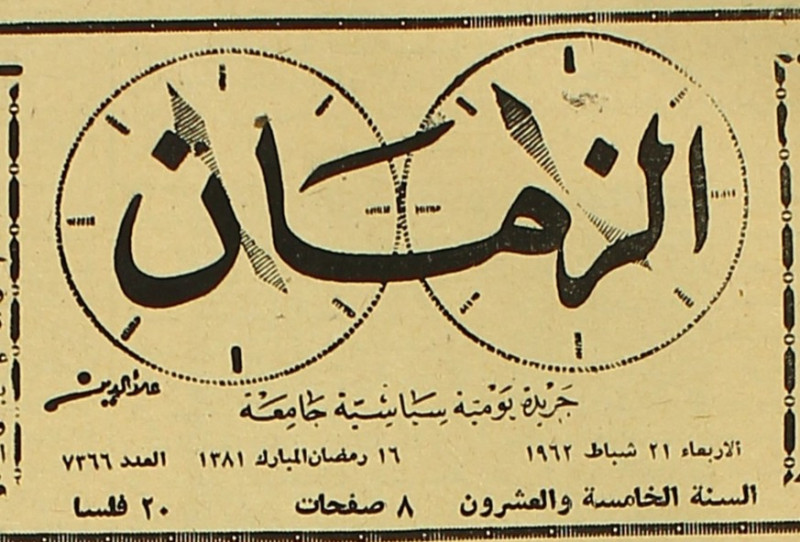 الزمان
علاءالدين
جَريْدة يَوْميّة سِيَاسيّة جَامِعَة
الاربعاء ٢١ شباط ١٩٦٢ ١٦ رمضان المبارك ١٣٨١ العدد ٧٣٦٦
السنة الخامسة والعشرون ٨ صفحات ٢٠ فلسا